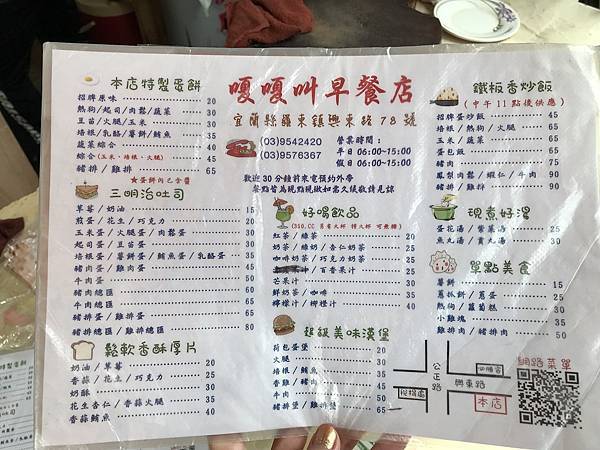 嘎嘎叫早餐店
宜蘭縣羅東鎮興東路78號
(03)9542420
(03)9576367
營業時間：
平日 06:00~15:00
假日 06:00~15:00
歡迎30分鐘前來電預約外帶
餐點皆為現點現做如需久候敬請見諒
本店特製蛋餅
招牌原味 20
熱狗/起司/肉鬆/蔬菜 30
豆苗/火腿/玉米 30
培根/乳酪/薯餅/鮪魚 35
蔬菜綜合 40
綜合(玉米、培根、火腿) 45
豬排/雞排 65
★蛋餅內已含醬
三明治吐司
草莓/奶油 15
煎蛋/花生/巧克力 25
玉米蛋/火腿蛋/肉鬆蛋 30
起司蛋/豆苗蛋 30
培根蛋/薯餅蛋/鮪魚蛋/乳酪蛋 35
豬肉蛋/雞肉蛋 45
牛肉蛋 50
豬肉總匯 60
牛肉總匯 65
豬排蛋/雞排蛋 65
豬排總匯/雞排總匯 80
鬆軟香酥厚片
奶油/草莓 20
香蒜/花生/巧克力 25
奶酥 30
花生杏仁/香蒜火腿 35
香蒜鮪魚 40
好喝飲品
紅茶/綠茶 20
奶茶/奶綠/杏仁奶茶 25
咖啡奶茶/巧克力奶茶 25
/百香果汁 25
芒果汁 30
鮮奶茶/咖啡 35
檸檬汁/柳橙汁 40
超級美味漢堡
荷包蛋堡 20
火腿 30
培根/鮪魚 35
香雞/豬肉 45
牛肉 50
豬排堡/雞排堡 65
鐵板香炒飯
(中午11點後供應)
招牌蛋炒飯 45
培根/熱狗/火腿 55
玉米/蔬菜 55
蛋包飯 65
豬肉 75
鳳梨肉鬆/蝦仁/牛肉 85
豬排/雞排 90
現煮好湯
蛋花湯/紫菜湯 25
魚丸湯/貢丸湯 30
單點美食
薯餅 15
蔥抓餅/蔥蛋 25
熱狗/蘿蔔糕 30
小雞塊 35
雞排肉/豬排肉 50
公正路
興東路
本店
網路菜單